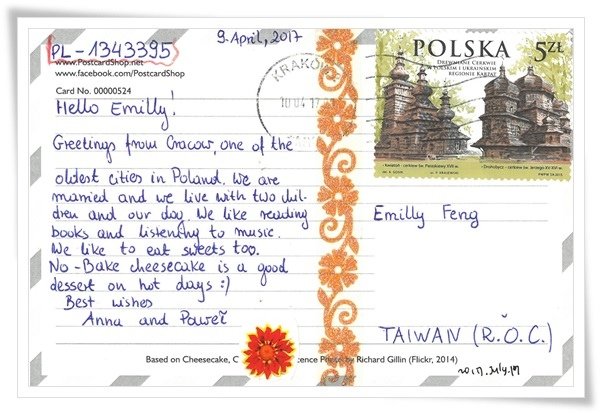 PL-1343395
9. April, 2017
www.PostcardShop.net
www.facebook.com/PostcardShop
Card No. 00000524
Hello Emilly!
Greetings from Cracow, one of the
oldest cities in Poland. We are
married and we live with two chil-
dren and our dog. We like reading
books and listening to music.
We like to eat sweets too.
No-Bake cheesecake is a good
dessert on hot days :)
Best wishes
Anna and Paweł
KRAKÓW
10 04 17
POLSKA 5ZŁ
Drewniane Cerkwie
w Polskim i Ukraińskim
Regionie Karpat
Emilly Feng
TAIWAN (R.O.C.)
Based on Cheesecake, C by Richard Gillin (Flickr, 2014)
2017. July. 17